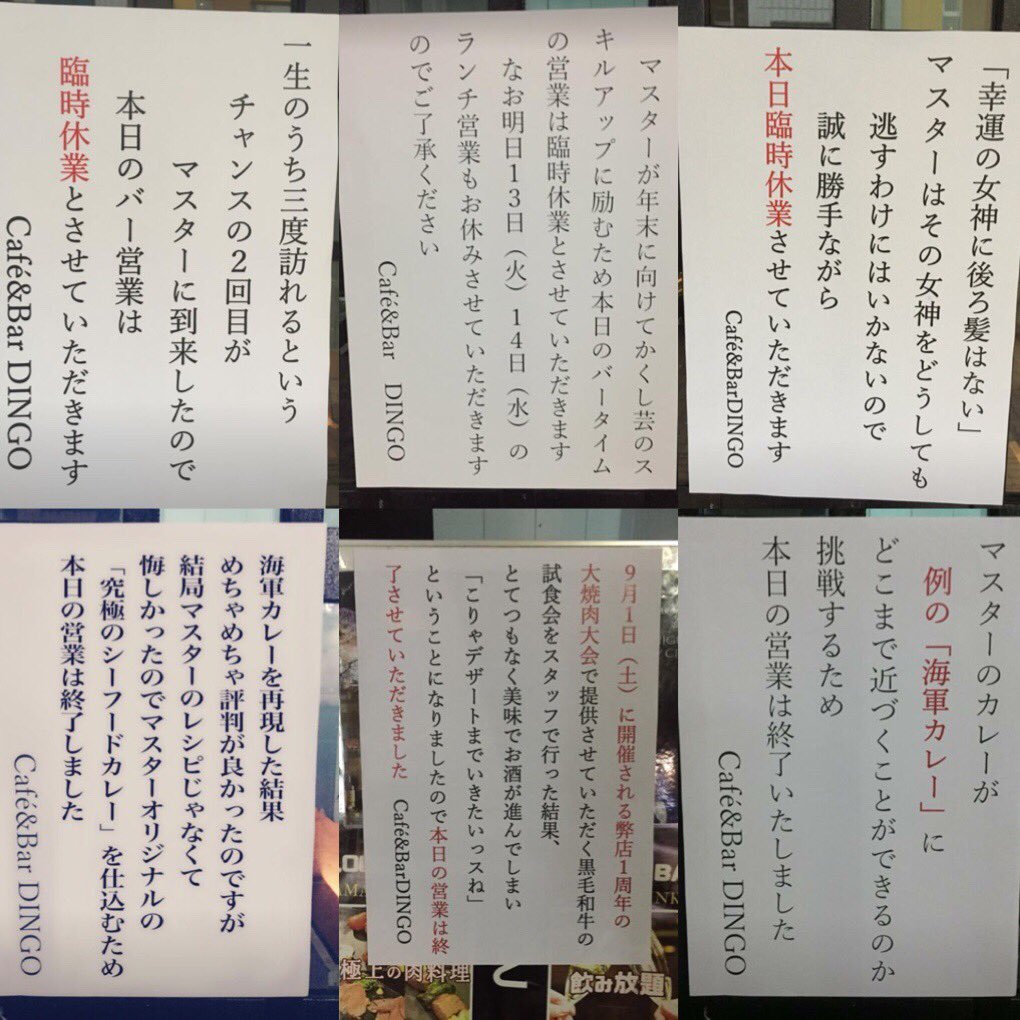 一生のうち三度訪れるという
チャンスの2回目が
マスターに到来したので
本日のバー営業は
臨時休業とさせていただきます
Café&Bar DINGO
マスターが年末に向けてかくし芸のス
キルアップに励むため本日のバータイム
の営業は臨時休業とさせていただきます
なお明日13日（火）14日（水）の
ランチ営業もお休みさせていただきます
のでご了承ください
Café&Bar DINGO
「幸運の女神に後ろ髪はない」
マスターはその女神をどうしても
逃すわけにはいかないので
誠に勝手ながら
本日臨時休業させていただきます
Café&BarDINGO
海軍カレーを再現した結果
めちゃめちゃ評判が良かったのですが
結局マスターのレシピじゃなくて
悔しかったのでマスターオリジナルの
「究極のシーフードカレー」を仕込むため
本日の営業は終了しました
Café&Bar DINGO
9月1日（土）に開催される弊店1周年の
大焼肉大会で提供させていただく黒毛和牛の
試食会をスタッフで行った結果、
とてつもなく美味でお酒が進んでしまい
「こりゃデザートまでいきたいっスね」
ということになりましたので本日の営業は終
了させていただきました
Café&BarDINGO
極上の肉料理
飲み放題
マスターのカレーが
例の「海軍カレー」に
どこまで近づくことができるのか
挑戦するため
本日の営業は終了いたしました
Café&Bar DINGO